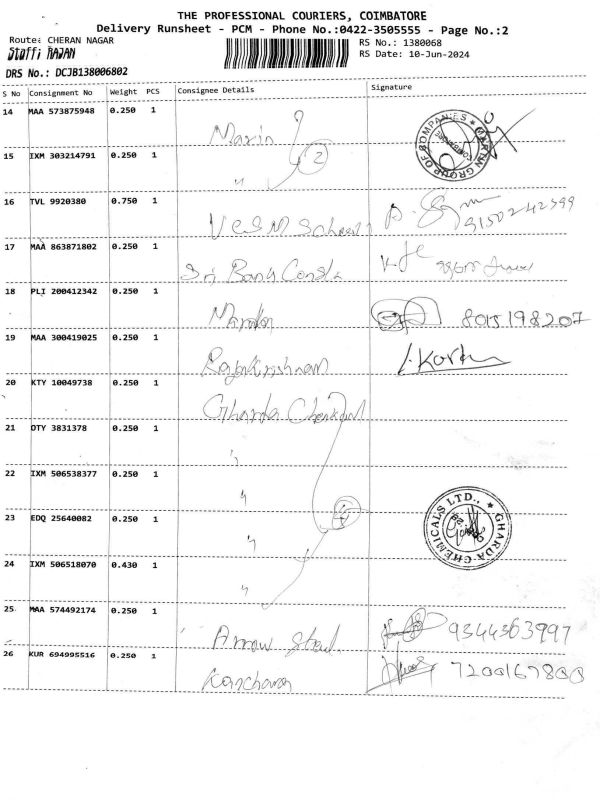 THE PROFESSIONAL COURIERS, COIMBATORE
Delivery Runsheet - PCM - Phone No.:0422-3505555 - Page No.:2
Route: CHERAN NAGAR
Staff: RAJAN
RS No.: 1380068
RS Date: 10-Jun-2024
DRS No.: DCJB138006802
S No Consignment No Weight PCS Consignee Details Signature
14 MAA 573875948 0.250 1
MARTIN GROUP OF COMPANIES * COIMBATORE
15 IXM 303214791 0.250 1 " 2
16 TVL 9920380 0.750 1
17 MAA 863871802 0.250 1
Sri
18 PLI 200412342 0.250 1
8015198207
19 MAA 300419025 0.250 1
Rajakrishnan
20 KTY 10049738 0.250 1
Gharda Chemical
21 OTY 3831378 0.250 1 "
22 IXM 506538377 0.250 1 "
23 EDQ 25640082 0.250 1 "
GHARDA CHEMICALS LTD., *
24 IXM 506518070 0.430 1 "
25 MAA 574492174 0.250 1
Arrow 9344363997
26 KUR 694995516 0.250 1
Kanchana 7200167800